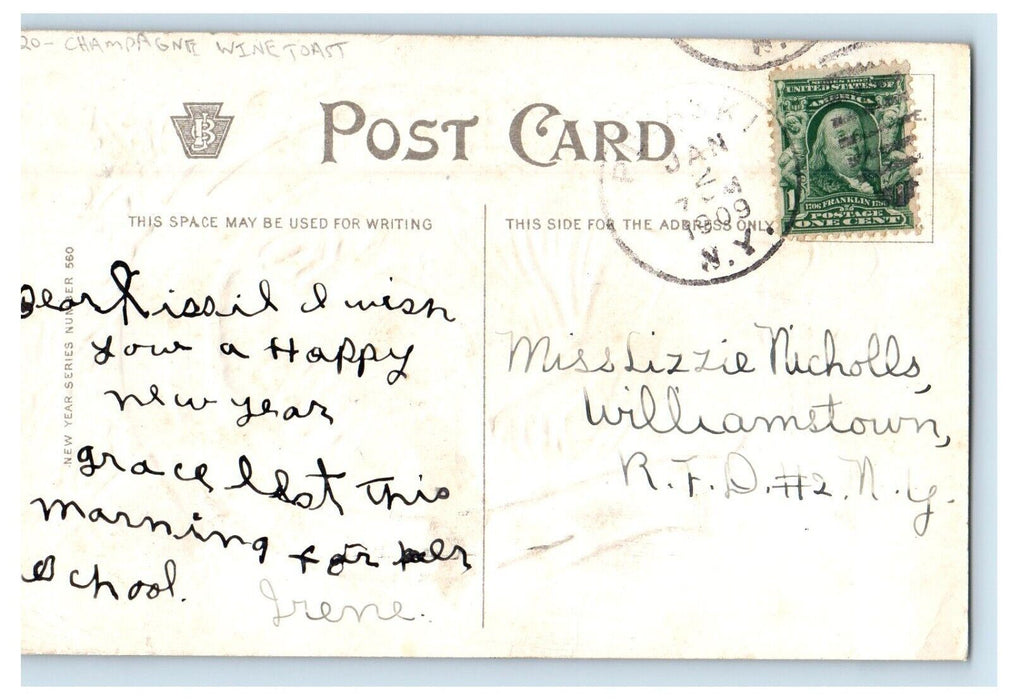 20- CHAMPAGNE WINE TOAST
POST CARD
THIS SPACE MAY BE USED FOR WRITING
THIS SIDE FOR THE ADDRESS ONLY
NEW YEAR SERIES NUMBER 560
JAN
1909
N.Y.
SERIES 1902
UNITED STATES OF
AMERICA
1706 FRANKLIN
POSTAGE
ONE CENT
Dear I wish
you a Happy
new year
grace left this
marning for her
school.
Irene.
Miss Lizzie Nicholls,
Williamstown,
R.F.D. #2. N.Y.